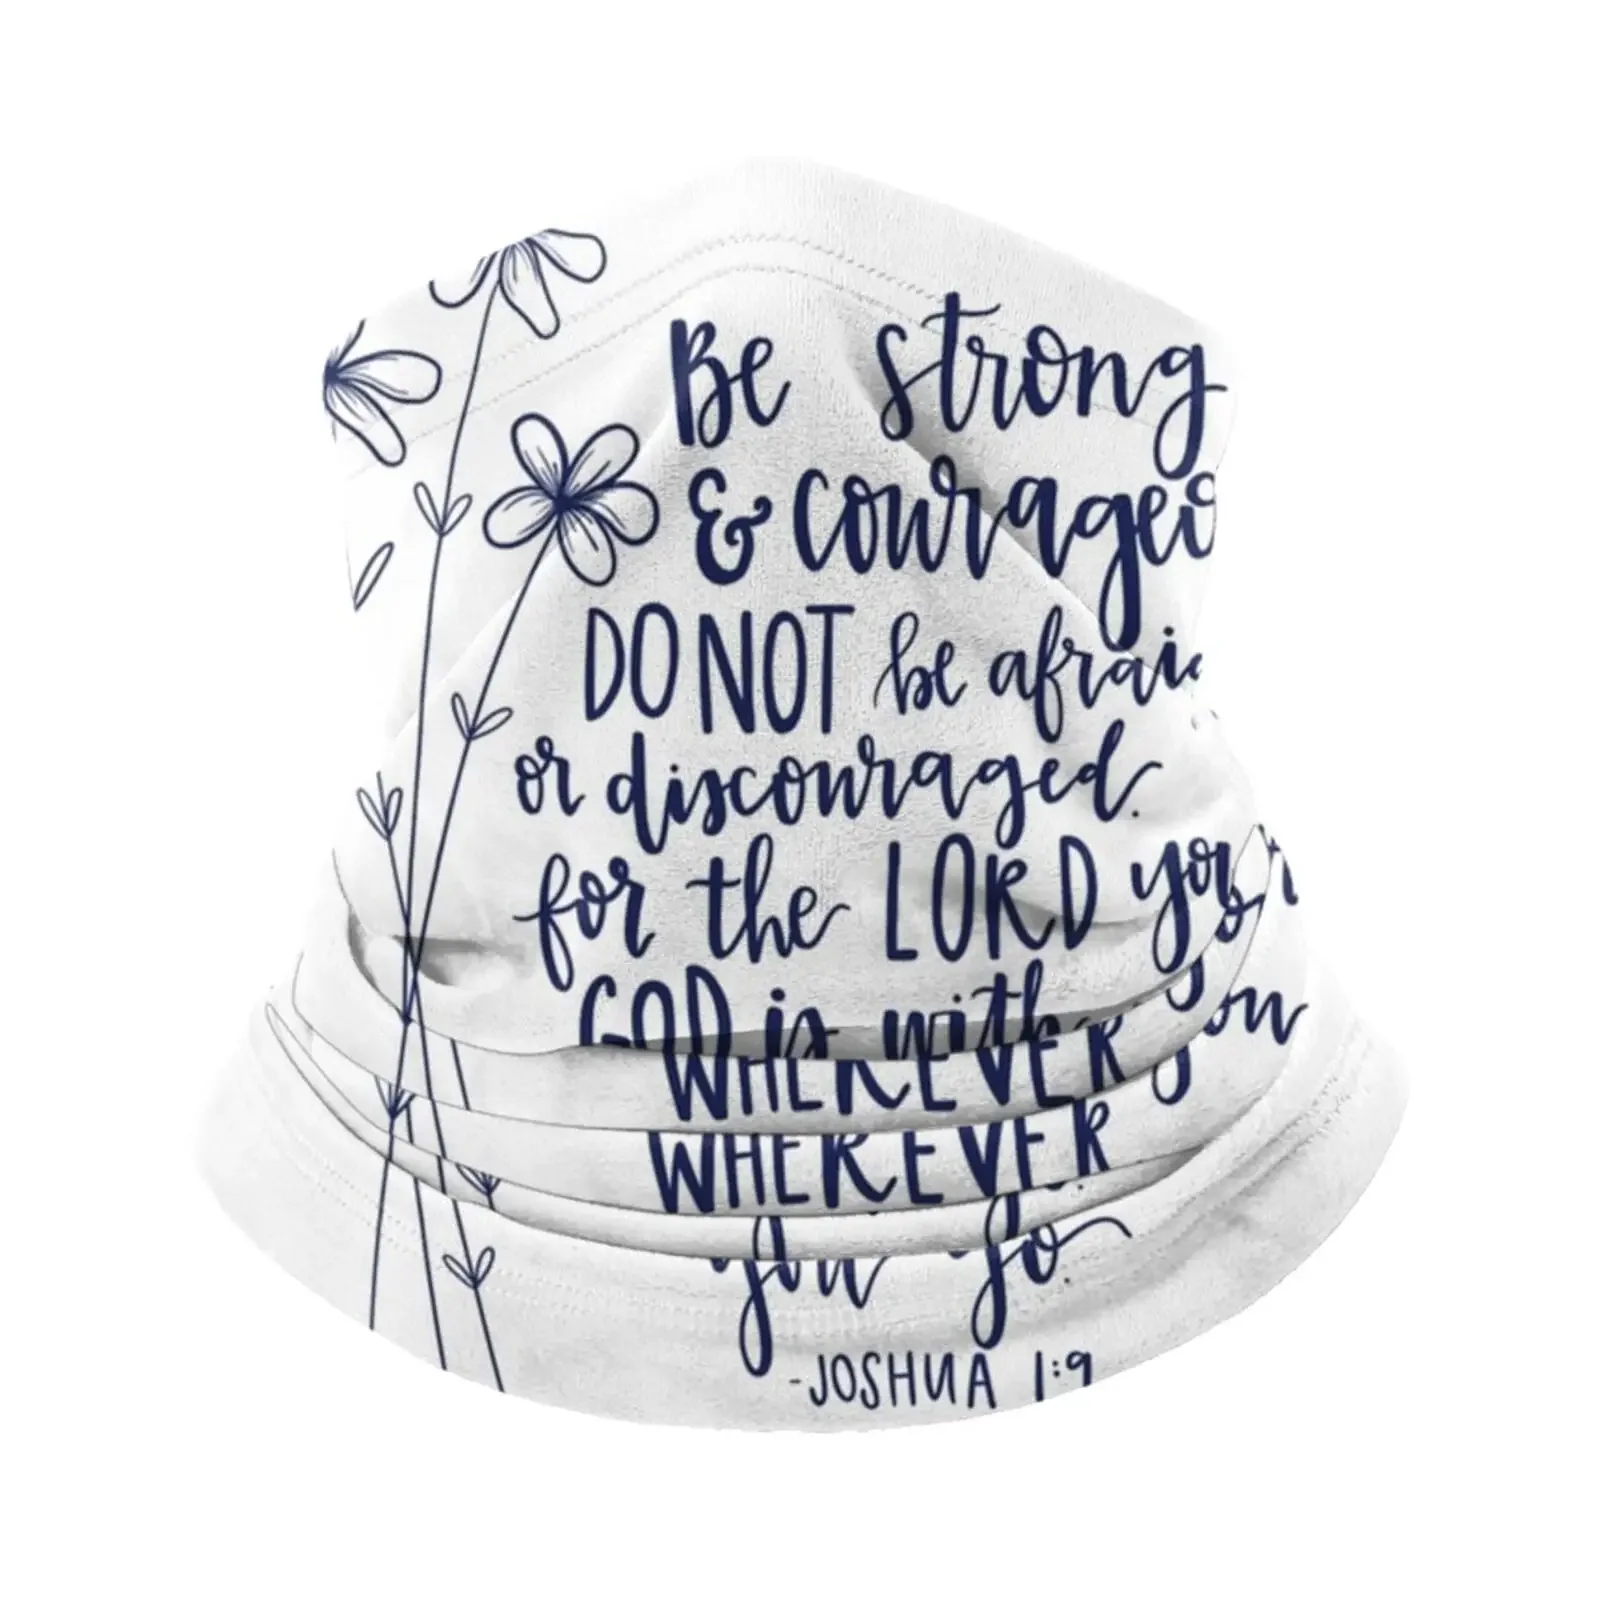 Be strong
& courageo
DO NOT be afrai
or discouraged.
for the LORD your
GOD is with you
WHEREVER
WHEREVER
you go.
-JOSHUA 1:9